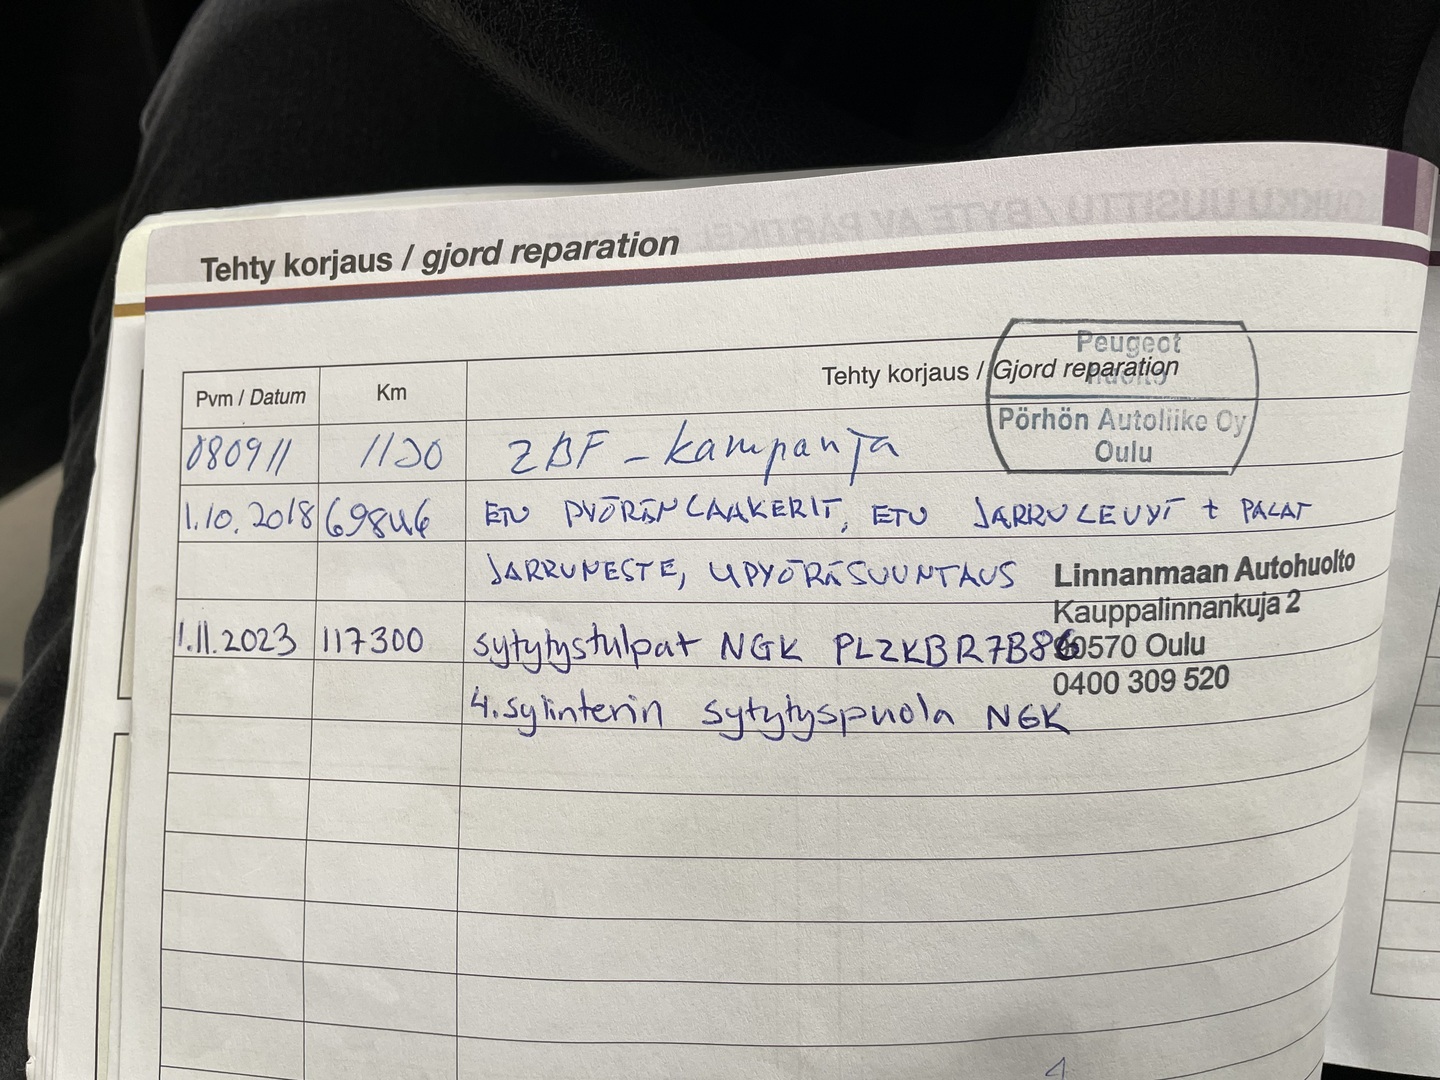 OUKKU UUSITTU / BYTE AV PARTIKEL
Tehty korjaus / gjord reparation
Peugeot
huolto
Pvm / Datum Km Tehty korjaus / Gjord reparation
Pörhön Autoliike Oy
Oulu
080911 1120 ZBF - kampanja
1.10.2018 69846 ETU PYÖRÄNLAAKERIT, ETU JARRULEVYT + PALAT
JARRUNESTE, 4PYÖRÄSUUNTAUS
Linnanmaan Autohuolto
Kauppalinnankuja 2
90570 Oulu
0400 309 520
1.11.2023 117300 sytytystulpat NGK PLZKBR7B8G
4.sylinterin sytytyspuola NGK